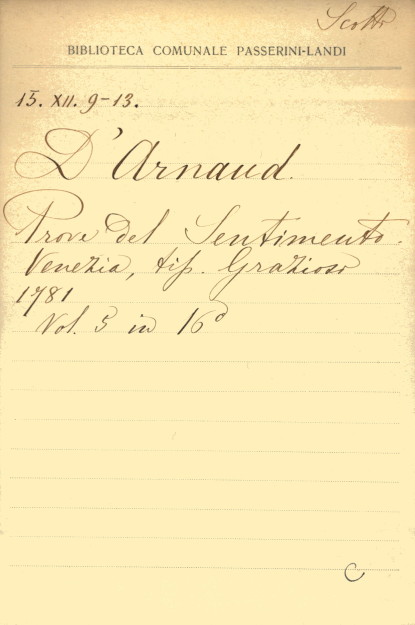 Scotti
BIBLIOTECA COMUNALE PASSERINI-LANDI
15. XII. 9-13.
D'Arnaud.
Prove del Sentimento.
Venezia, tip. Graziosi
1781
Vol. 5 in 16º
C